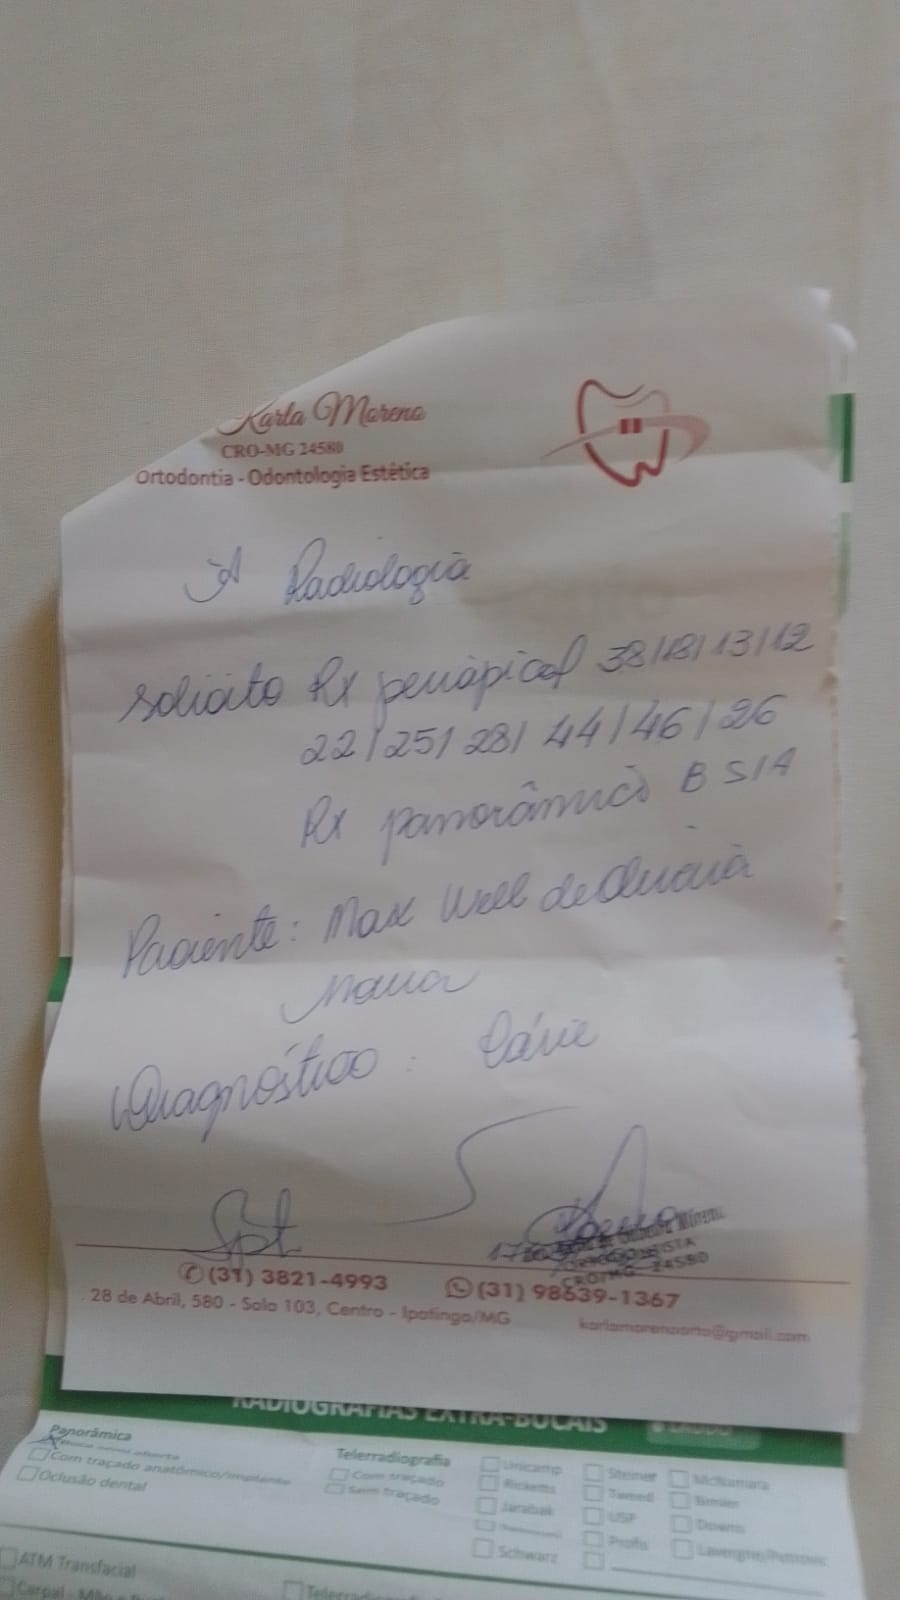 Karla Moreno
CRO-MG 24580
Ortodontia - Odontologia Estética
À Radiologia
Solicito Rx periapical 38/18/13/12
22/25/28/44/46/26
Rx panorâmico B S/A
Paciente: Max Well de
Diagnóstico: Cárie
(31) 3821-4993 (31) 98639-1367
28 de Abril, 580 - Sala 103, Centro - Ipatinga/MG karlamorenoorto@gmail.com
RADIOGRAFIAS EXTRA-BUCAIS
Panorâmica
Com traçado anatômico/implante
Oclusão dental
Telerradiografia
Com traçado
Sem traçado
Unicamp
Ricketts
Jarabak
Schwarz
Steiner
Tweed
USP
Profis
McNamara
Bimler
Downs
Lavergne/Petrovic
ATM Transfacial